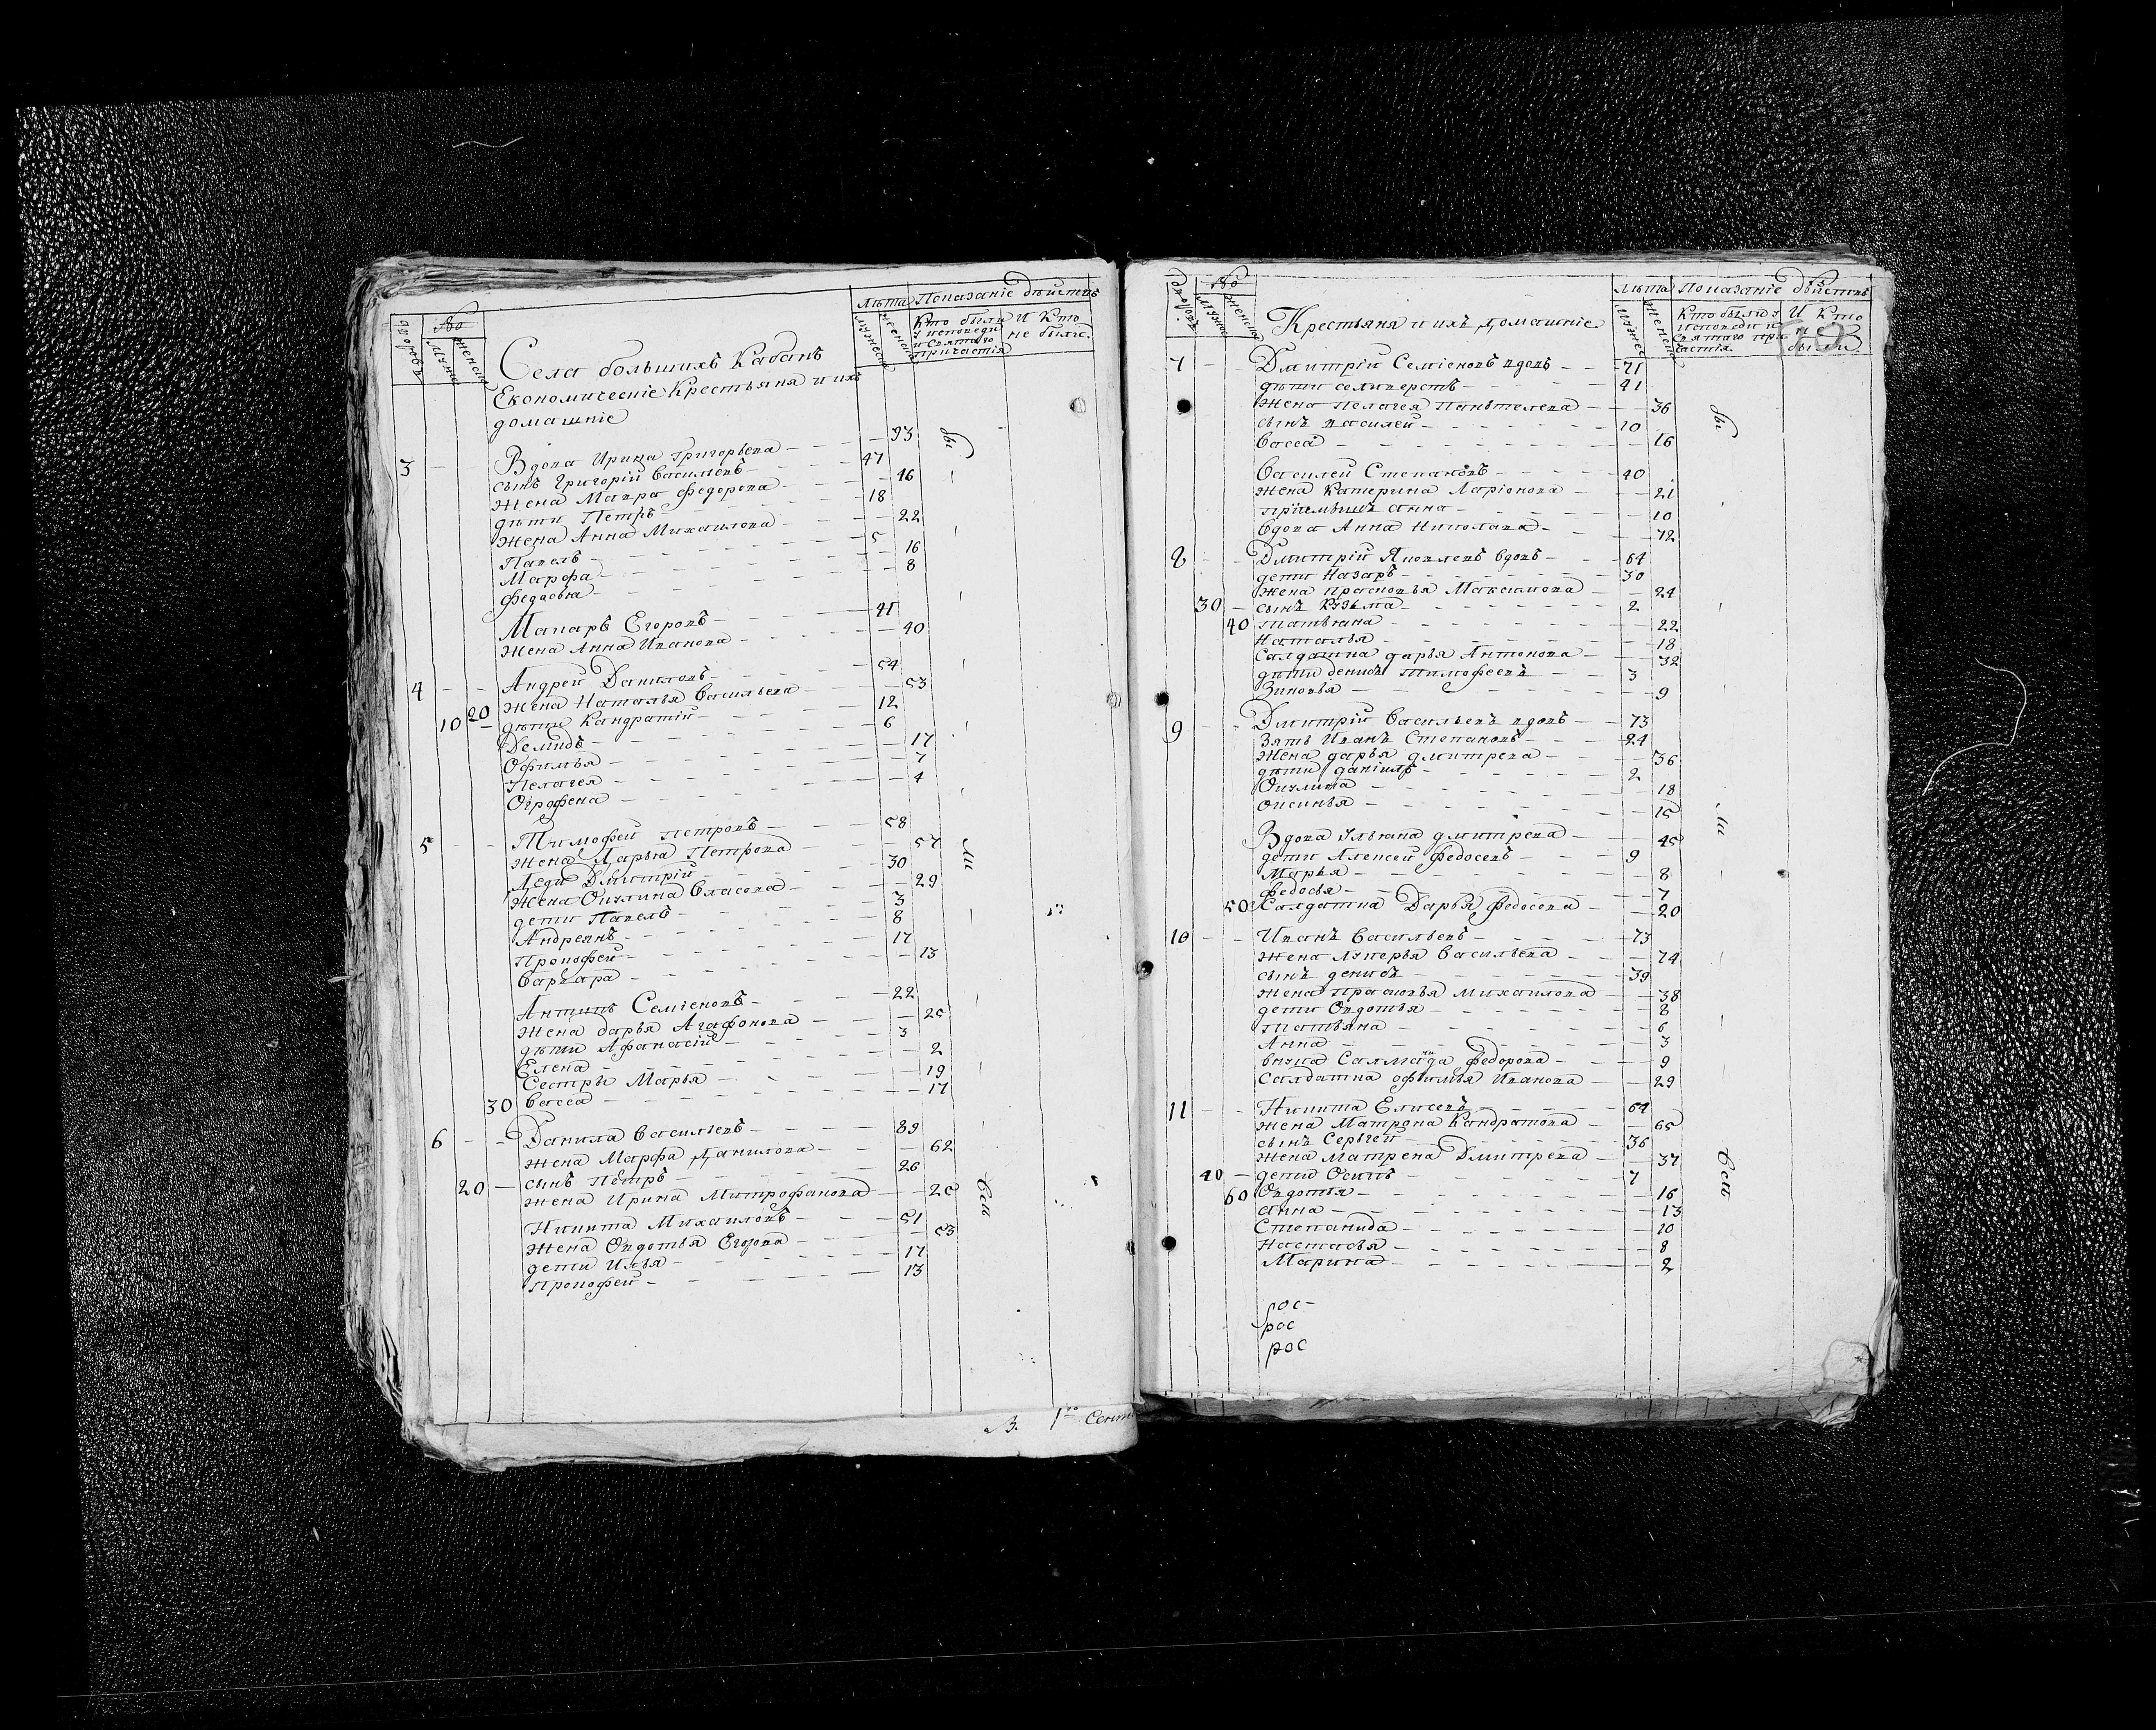 дворовъ № мужес женска
лѣта Показаніе дѣйствъ
мужеска женска Кто были у исповеди и Святаго причастія И Кто не были.
Села большихъ Кабанъ
Економическіе Крестьяня и ихъ
домашніе
3 Вдова Ирина Григорьева 93
сынъ Григорій Васильевъ 47
жена Мавра Федорова 46
дѣти Петръ 18
жена Анна Михаилова 22
Павелъ 5
Марфа 16
Федосья 8
Макаръ Егоровъ 41
жена Анна Иванова 40
4 Андрей Даниловъ 54
жена Наталья Васильева 53
10 20 дѣти Кандратій 12
Демидъ 6
Офимья 17
Пелагея 7
Огрофена 4
5 Тимофей Петровъ 58
жена Марья Петрова 57
Дети Дмитрій 30
жена Окулина Власова 29
дети Павелъ 3
Андреянъ 8
Прокофей 17
Варвара 13
Антипъ Семіеновъ 22
жена дарья Агафонова 25
дѣти Афанасій 3
Елена 2
Сестры Марья 19
30 Васса 17
6 Данила Васильевъ 89
жена Марфа Данилова 62
сынъ Петръ 26
20 жена Ирина Митрофанова 26
Никита Михаиловъ 51
жена Овдотья Егорова 53
дети Илья 17
Прокофей 13
бы
ли
Всѣ
1го Сентя
дворовъ № мужес женска
Крестьяня и ихъ домашніе
лѣта Показаніе дѣйствъ
мужес женска Кто были у исповеди и Святаго причастія. И Кто не были.
7 Дмитрій Семіеновъ вдовъ 71
дѣти селиверстъ 41
жена Пелагея Пантелева 36
сынъ василей 10
Васса 16
Василей Степановъ 40
жена Катерина Ларіонова 21
пріемышъ анна 10
Вдова Анна Николава 72
8 Дмитрій Яковлевъ вдовъ 64
дети Назаръ 30
жена Прасковья Максимова 24
30 сынъ Кузьма 2
40 татьяна 22
Наталья 18
Салдатка дарья Антонова 32
дѣти денисъ Тимофеевъ 3
Зиновья 9
9 Дмитрій Васильевъ вдовъ 73
Зять Иванъ Степановъ 24
жена дарья дмитрева 36
дѣти даніилъ 2
Окулина 18
оксинья 15
Вдова Ульяна дмитрева 45
дети Алексей Федосевъ 9
Марья 8
Федосья 7
50 Салдатка Дарья Федосева 20
10 Иванъ Васильевъ 73
жена Лукерья Васильева 74
сынъ денисъ 39
жена Прасковья Михаилова 38
дети Овдотья 8
татьяна 6
Анна 3
Федорова 9
Салдатка офимья Иванова 29
11 Никита Елисевъ 64
жена Матрена Кандратова 65
сынъ Сергей 36
жена Матрена Дмитрева 37
40 дети Осипъ 7
60 Овдотья 16
анна 13
Степанида 10
Настасья 8
Марина 2
рос
рос
рос
бы
ли
Всѣ